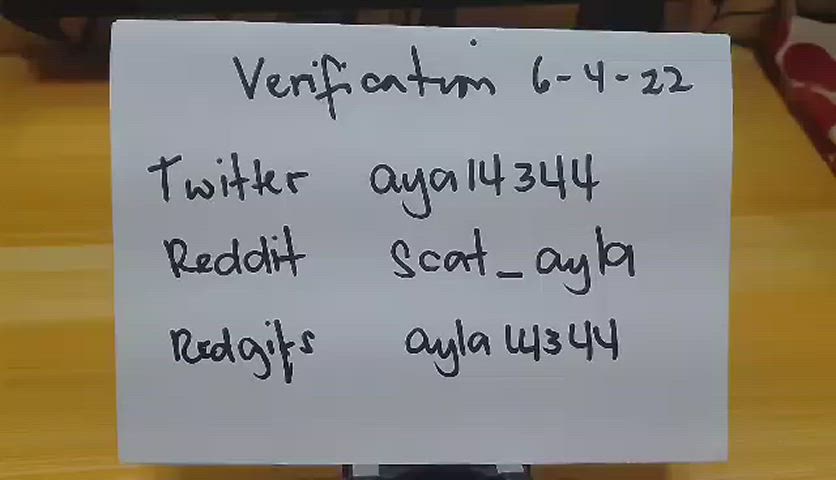 Verification 6-4-22
Twitter aya14344
Reddit Scat_ayla
Redgifs ayla14344